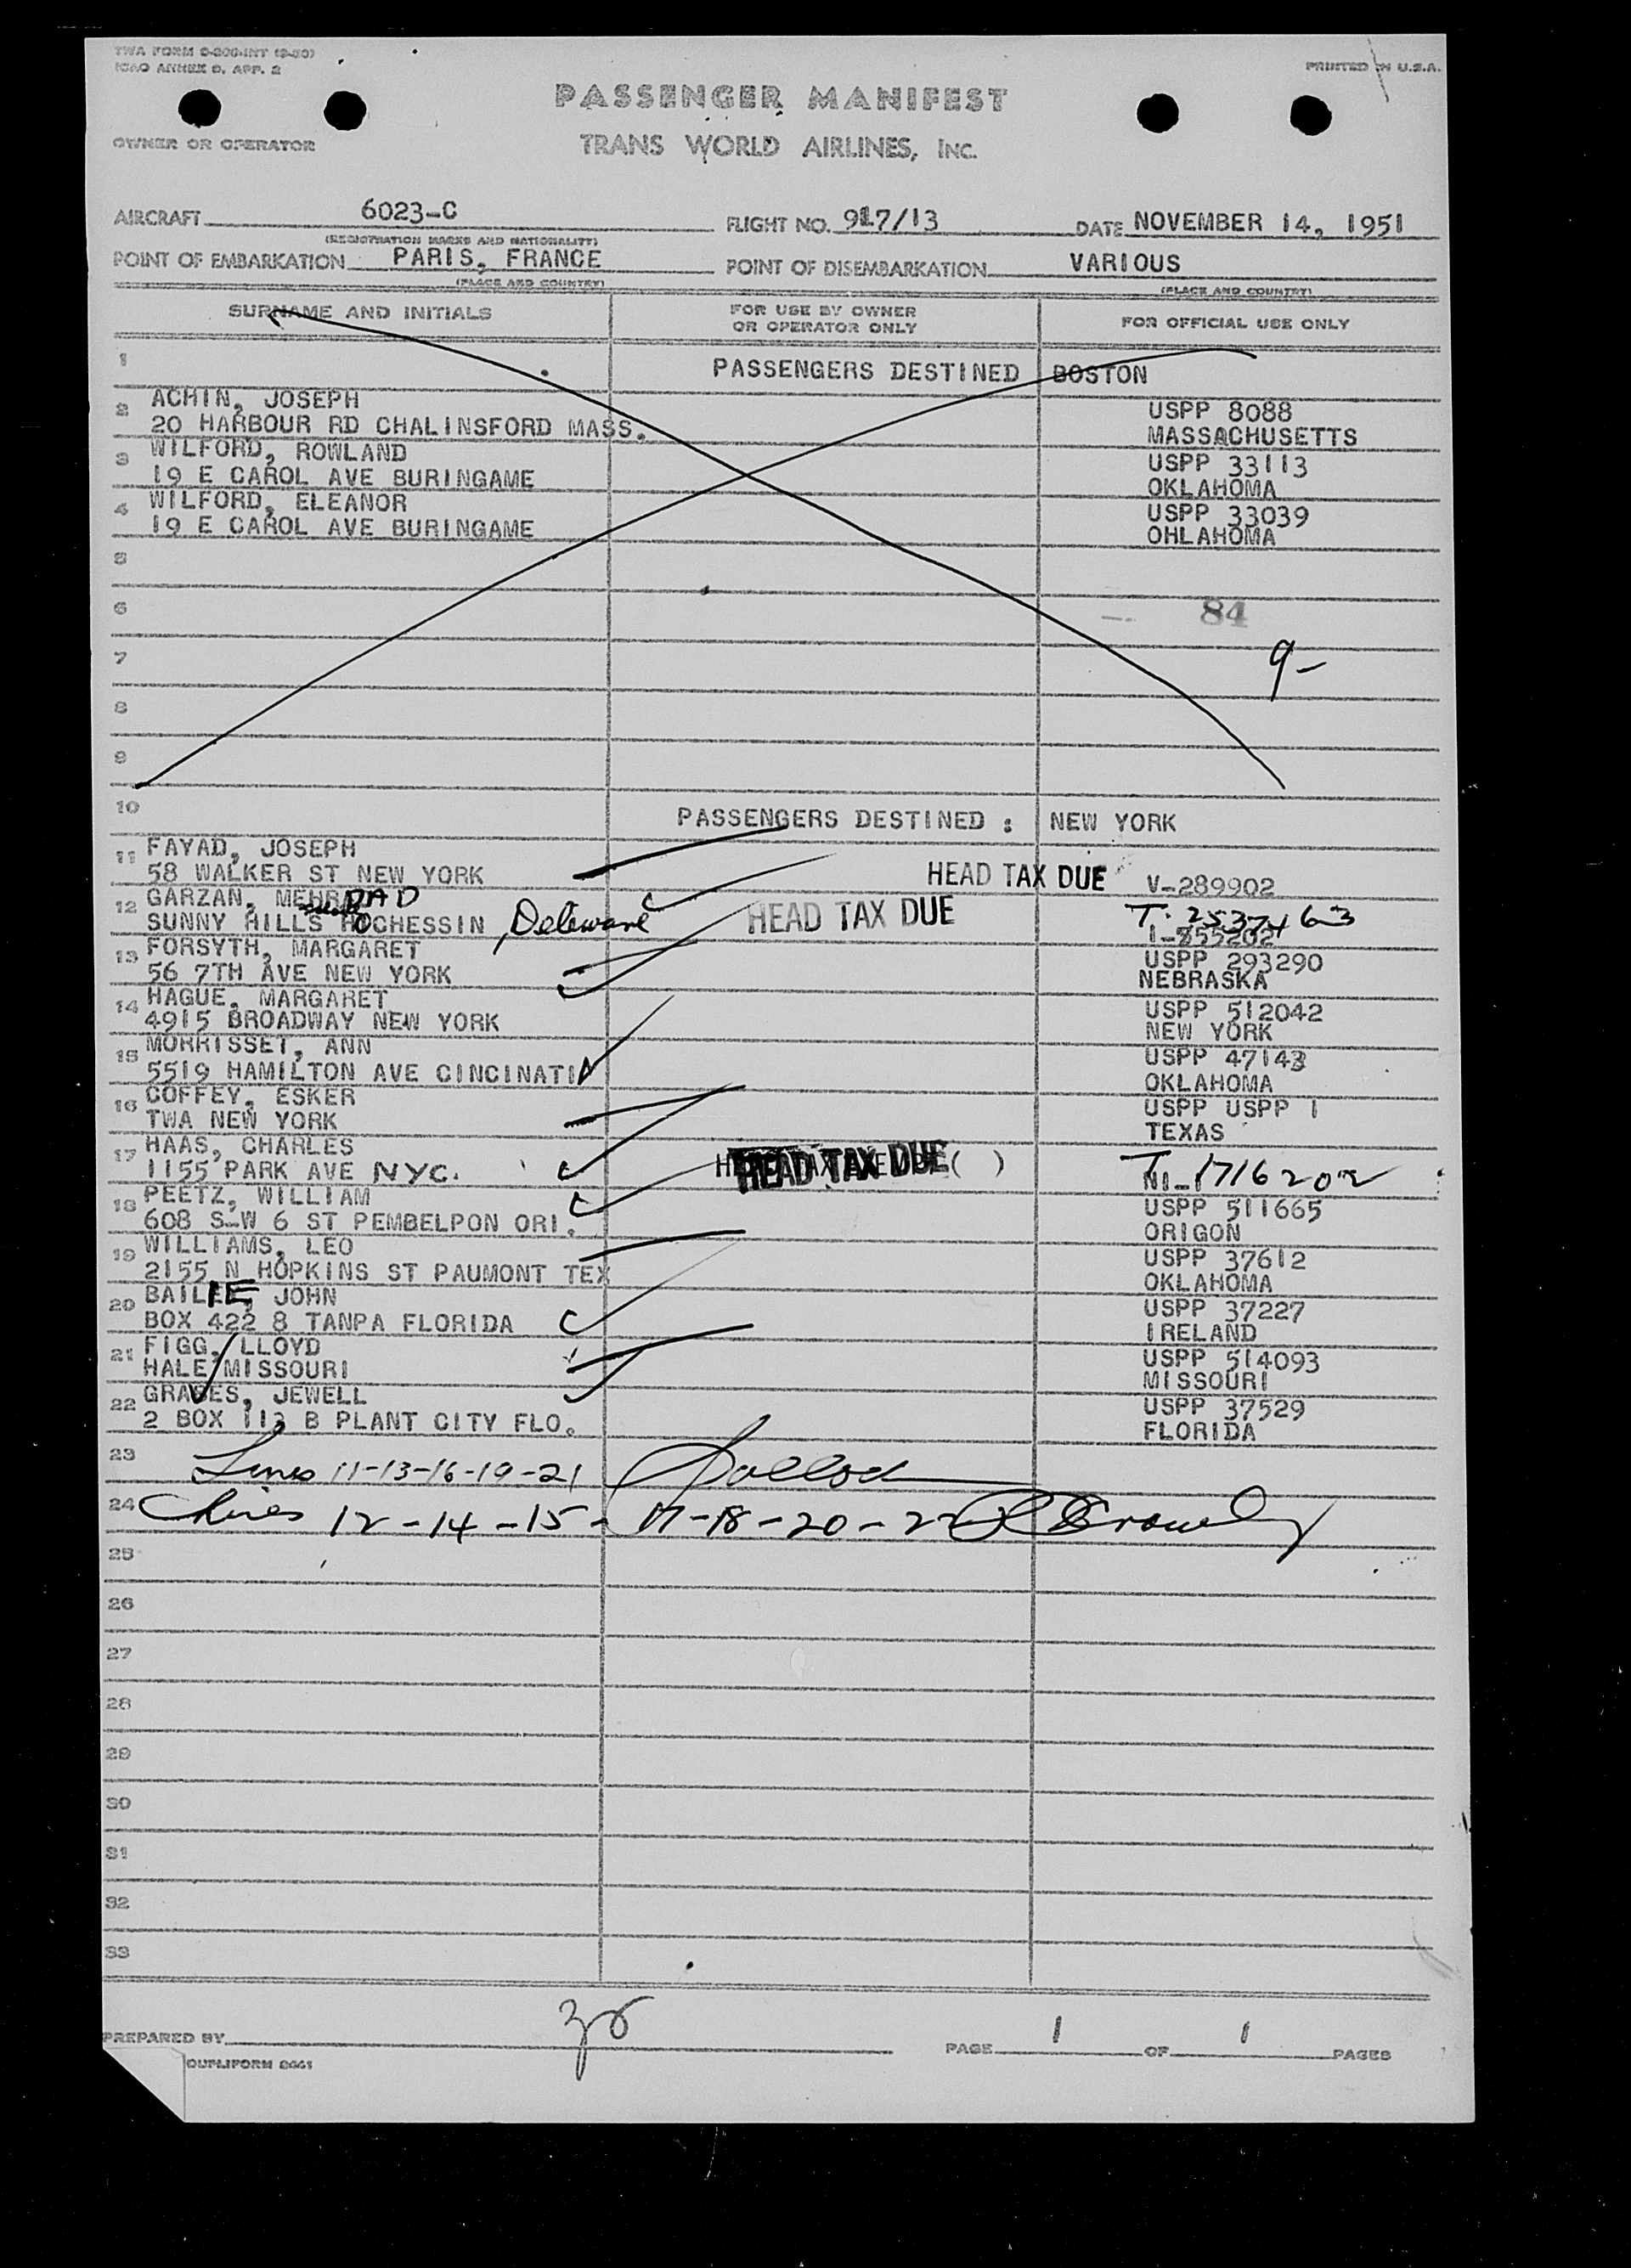 TWA FORM O-206-INT (9-50)
ICAO ANNEX 9, APP. 2
PRINTED IN U.S.A.
PASSENGER MANIFEST
OWNER OR OPERATOR
TRANS WORLD AIRLINES, INC.
AIRCRAFT 6023-C FLIGHT NO. 917/13 DATE NOVEMBER 14, 1951
(REGISTRATION MARKS AND NATIONALITY)
POINT OF EMBARKATION PARIS, FRANCE POINT OF DISEMBARKATION VARIOUS
(PLACE AND COUNTRY) (PLACE AND COUNTRY)
SURNAME AND INITIALS FOR USE BY OWNER OR OPERATOR ONLY FOR OFFICIAL USE ONLY
1 PASSENGERS DESTINED BOSTON
2 ACHIN, JOSEPH USPP 8088
20 HARBOUR RD CHALINSFORD MASS. MASSACHUSETTS
3 WILFORD, ROWLAND USPP 33113
19 E CAROL AVE BURINGAME OKLAHOMA
4 WILFORD, ELEANOR USPP 33039
19 E CAROL AVE BURINGAME OHLAHOMA
5
6 84
7 9-
8
9
10 PASSENGERS DESTINED : NEW YORK
11 FAYAD, JOSEPH
58 WALKER ST NEW YORK HEAD TAX DUE V-289902
12 GARZAN, MEHRDAD T. 2537463
SUNNY HILLS HOCHESSIN, Deleware HEAD TAX DUE I-855202
13 FORSYTH, MARGARET USPP 293290
56 7TH AVE NEW YORK NEBRASKA
14 HAGUE, MARGARET USPP 512042
4915 BROADWAY NEW YORK NEW YORK
15 MORRISSET, ANN USPP 47143
5519 HAMILTON AVE CINCINATI OKLAHOMA
16 COFFEY, ESKER USPP USPP 1
TWA NEW YORK TEXAS
17 HAAS, CHARLES
1155 PARK AVE NYC. HEAD TAX DUE ( ) T-1716202
18 PEETZ, WILLIAM USPP 511665
608 S-W 6 ST PEMBELPON ORI. ORIGON
19 WILLIAMS, LEO USPP 37612
2155 N HOPKINS ST PAUMONT TEX OKLAHOMA
20 BAILIE, JOHN USPP 37227
BOX 422 8 TANPA FLORIDA IRELAND
21 FIGG, LLOYD USPP 514093
HALE MISSOURI MISSOURI
22 GRAVES, JEWELL USPP 37529
2 BOX 113 B PLANT CITY FLO. FLORIDA
23 Lines 11-13-16-19-21
24 Lines 12-14-15-17-18-20-22
25
26
27
28
29
30
31
32
33
PREPARED BY PAGE 1 OF 1 PAGES
DUPLIFORM